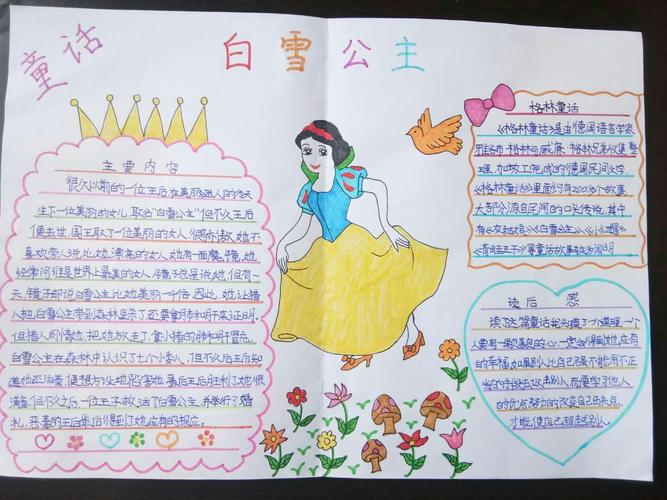 童话
白雪公主
主要内容
很久以前的一位王后在美丽迷人的冬天
生下一位美丽的女儿,取名"白雪公主"但不久王后
便去世,国王取了一位美丽的女人很骄傲她不
喜欢旁人说比她漂亮的女人她有一面魔镜,她
经常问谁是世界上最美的女人,镜子总是说她,但有一
天,镜子却说白雪公主比她美丽一千倍。因此,她让猎
人把白雪公主带到森林里杀了还要拿肺和肝来证明,
但猎人同情她,把她放走了,拿小猪的肺和肝冒充。
白雪公主在森林中认识了七个小矮人,但不久后王后知
道她还活着,便想方设法地陷害她,最后王后胜利了她很
满意,但不久之后,一位王子救活了白雪公主,并举行了婚
礼。恶毒的王后最后得到了她应有的报应。
格林童话
《格林童话》是由德国语言学家
雅各布·格林与威廉·格林兄弟收集、整
理、加工完成的德国民间文学。
《格林童话》里面约有200多个故事
大部分源自民间的口头传说,其中
有《灰姑娘》《白雪公主》《小红帽》
《青蛙王子》等童话故事
读后感
读了这篇童话我知道了一个道理,一个
人要有一颗美良的心,一定会得到她应有
的幸福,如果别人比自己强不能用不正
当的手段去攻击别人,而要学习他人
的优点,努力的改变自己的缺点,
才能使自己超越别人。